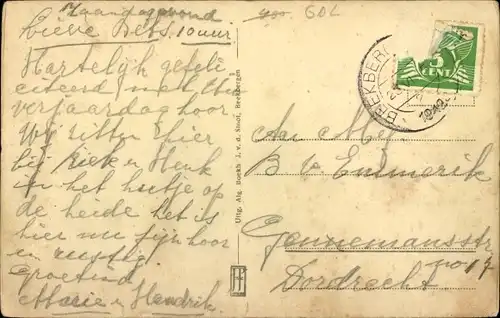 Maandagavond
Lieve Bets, 10 uur
Hartelijk gefeli
citeerd met Uw
verjaardag hoor
Wij zitten hier
bij Riek en Henk
in het hutje op
de heide het is
hier nu fijn hoor
en rustig.
Groetend
Marie en Hendrik.
Uitg. Alg. Boekh. J. v. d. Smit, Beekbergen
GDL
5
CENT
BEEKBER
Aan Mej.
B v Emmerik
Gennemansstr
no 17
Dordrecht.